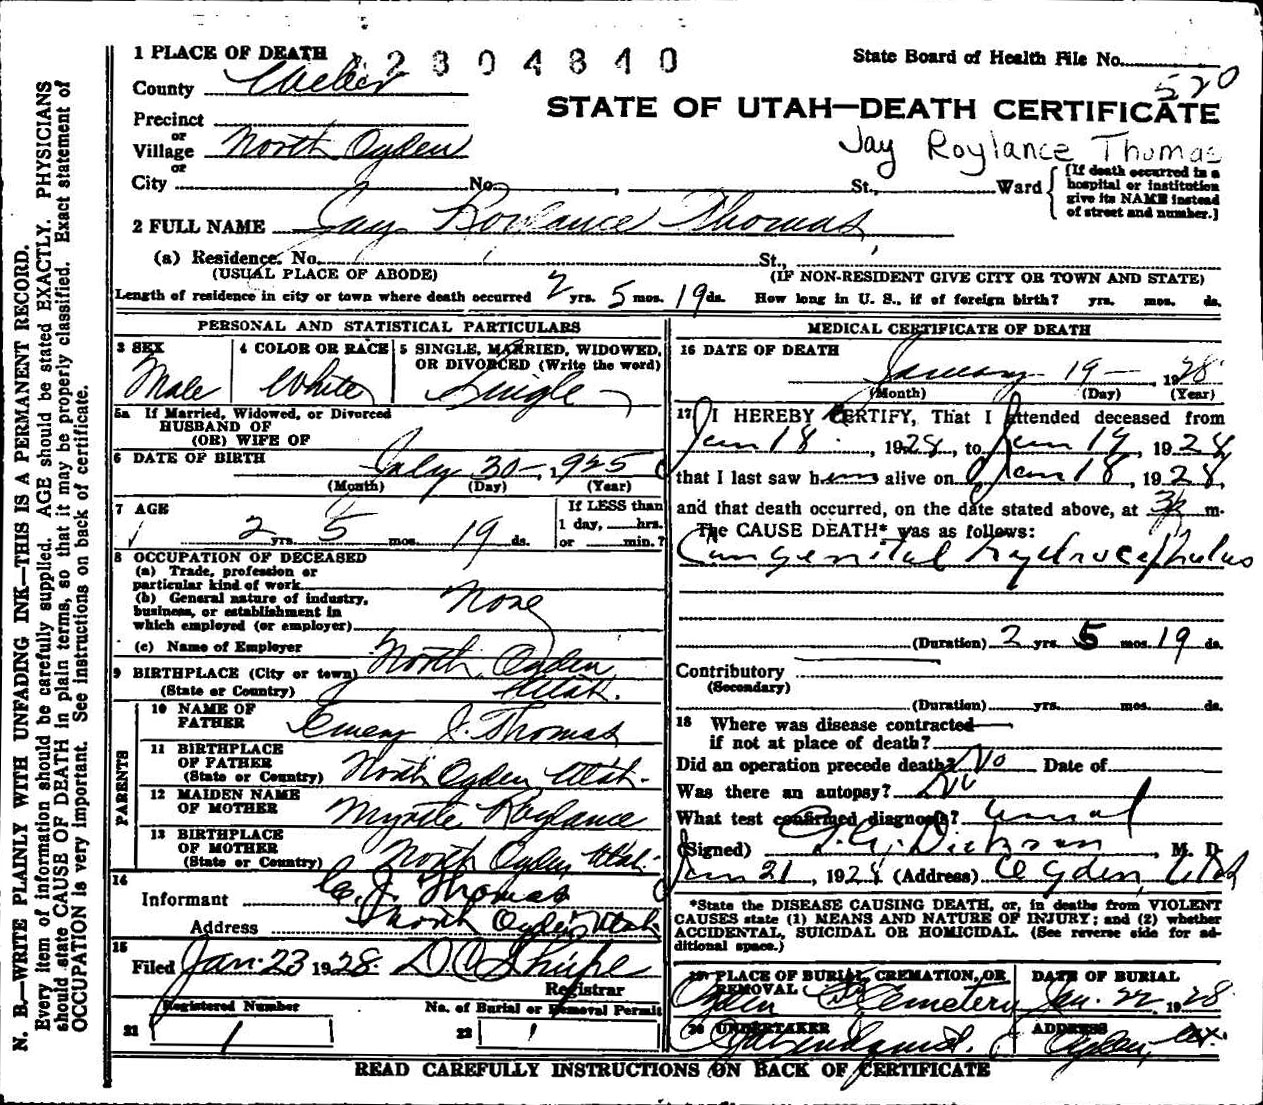 1 PLACE OF DEATH 2304840
State Board of Health File No.
County Weber
520
STATE OF UTAH—DEATH CERTIFICATE
Precinct
or
Village North Ogden
or
Jay Roylance Thomas
City No. , St., Ward
(If death occurred in a hospital or institution give its NAME instead of street and number.)
2 FULL NAME Jay Roylance Thomas
(a) Residence. No. St.,
(USUAL PLACE OF ABODE) (IF NON-RESIDENT GIVE CITY OR TOWN AND STATE)
Length of residence in city or town where death occurred 2 yrs. 5 mos. 19 ds. How long in U. S., if of foreign birth? yrs. mos. ds.
PERSONAL AND STATISTICAL PARTICULARS
3 SEX
Male
4 COLOR OR RACE
White
5 SINGLE, MARRIED, WIDOWED,
OR DIVORCED (Write the word)
Single
5a If Married, Widowed, or Divorced
HUSBAND OF
(OR) WIFE OF
6 DATE OF BIRTH
July 30—, 1925
(Month) (Day) (Year)
7 AGE
2 yrs. 5 mos. 19 ds.
If LESS than
1 day, hrs.
or min.?
8 OCCUPATION OF DECEASED
(a) Trade, profession or
particular kind of work
(b) General nature of industry,
business, or establishment in
which employed (or employer)
None
(c) Name of Employer
9 BIRTHPLACE (City or town) North Ogden
(State or Country) Utah.
PARENTS
10 NAME OF
FATHER Emery J. Thomas
11 BIRTHPLACE
OF FATHER
(State or Country) North Ogden Utah.
12 MAIDEN NAME
OF MOTHER Myrtle Roylance
13 BIRTHPLACE
OF MOTHER
(State or Country) North Ogden, Utah.
14
Informant E. J. Thomas
Address North Ogden Utah
15
Filed Jan. 23 1928. D C Shupe
Registrar
Registered Number
No. of Burial or Removal Permit
21 1
22 1
MEDICAL CERTIFICATE OF DEATH
16 DATE OF DEATH
January 19 — , 1928
(Month) (Day) (Year)
17 I HEREBY CERTIFY, That I attended deceased from
Jan 18 , 1928, to Jan 19, 1928,
that I last saw him alive on Jan 18, 1928,
and that death occurred, on the date stated above, at m.
The CAUSE DEATH* was as follows:
Congenital hydrocephulus
(Duration) 2 yrs. 5 mos. 19 ds.
Contributory
(Secondary)
(Duration) yrs. mos. ds.
18 Where was disease contracted
if not at place of death?
Did an operation precede death? No Date of
Was there an autopsy? No
What test confirmed diagnosis? usual
(Signed) Dickson , M. D.
Jan 21, 1928 (Address) Ogden, Utah
*State the DISEASE CAUSING DEATH, or, in deaths from VIOLENT
CAUSES state (1) MEANS AND NATURE OF INJURY; and (2) whether
ACCIDENTAL, SUICIDAL OR HOMICIDAL. (See reverse side for ad-
ditional space.)
19 PLACE OF BURIAL, CREMATION, OR
REMOVAL
Ogden City Cemetery
DATE OF BURIAL
Jan. 22 1928.
20 UNDERTAKER
Lindquist.
ADDRESS
Ogden,
READ CAREFULLY INSTRUCTIONS ON BACK OF CERTIFICATE
N. B.—WRITE PLAINLY WITH UNFADING INK—THIS IS A PERMANENT RECORD.
Every item of information should be carefully supplied. AGE should be stated EXACTLY. PHYSICIANS
should state CAUSE OF DEATH in plain terms, so that it may be properly classified. Exact statement of
OCCUPATION is very important. See instructions on back of certificate.